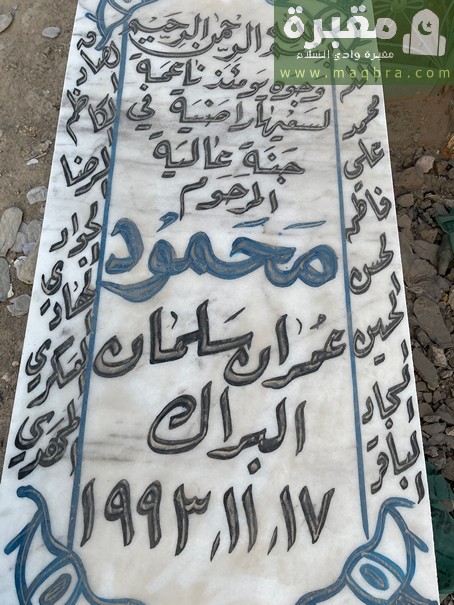 مقبرة
مقبرة وادي السلام
www.maqbra.com
الرحمن الرحيم
وجوه يومئذ ناعمة
لسعيها راضية في
جنة عالية
المرحوم
محمود
عمران سلمان
البراك
١٩٩٣.١١.١٧
محمد
علي
فاطمه
الحسن
الحسين
السجاد
الباقر
الصادق
الكاظم
الرضا
الجواد
الهادي
العسكري
المهدي